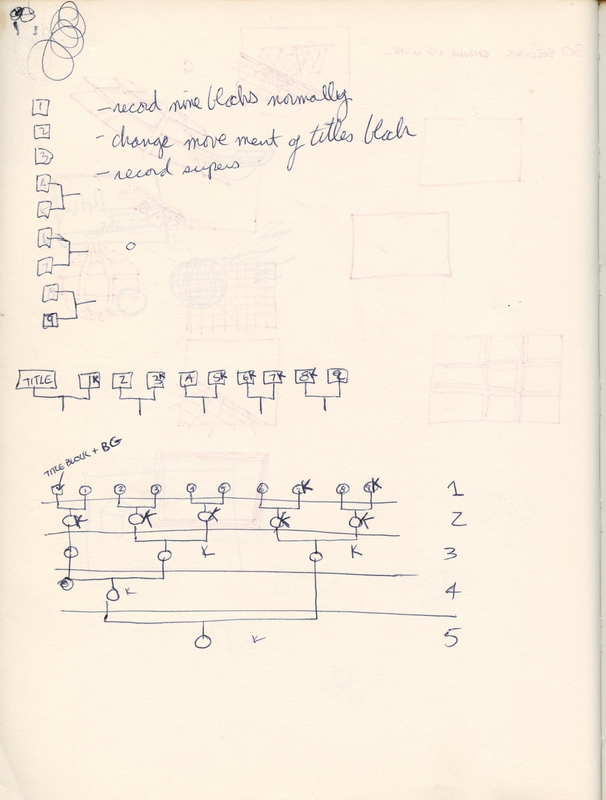 1 - record nine blocks normally
2 - change movement of titles block
3 - record supers
4
5
6
7
8
9
TITLE 1K 2 3K 4 5K 6K 7K 8K 9
TITLE BLOCK + BG
1 2 3 4 5 6 K 8 K 1
K K K K K 2
K K 3
K 4
K 5